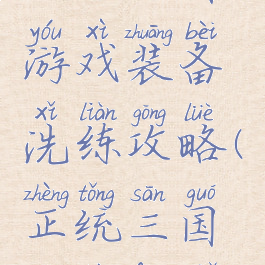 yóu xì zhuāng bèi
游戏装备
xǐ liàn gōng lüè
洗练攻略(
zhèng tǒng sān guó
正统三国